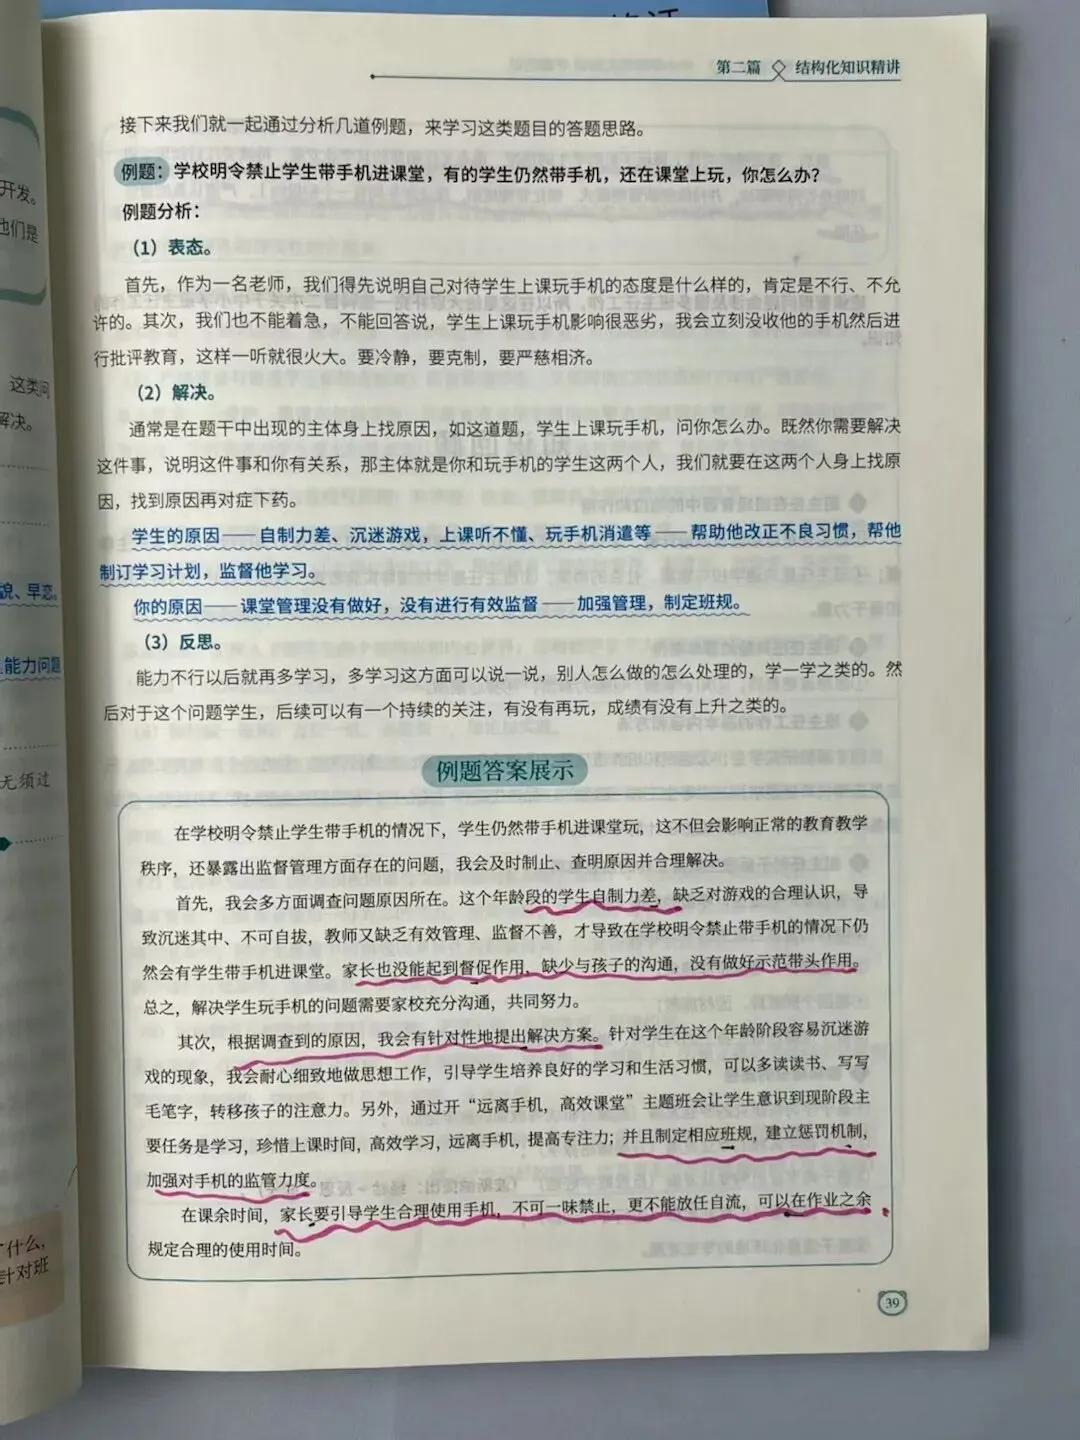 第二篇 结构化知识精讲
接下来我们就一起通过分析几道例题，来学习这类题目的答题思路。
例题：学校明令禁止学生带手机进课堂，有的学生仍然带手机，还在课堂上玩，你怎么办？
例题分析：
（1）表态。
首先，作为一名老师，我们得先说明自己对待学生上课玩手机的态度是什么样的，肯定是不行、不允
许的。其次，我们也不能着急，不能回答说，学生上课玩手机影响很恶劣，我会立刻没收他的手机然后进
行批评教育，这样一听就很火大。要冷静，要克制，要严慈相济。
（2）解决。
通常是在题干中出现的主体身上找原因，如这道题，学生上课玩手机，问你怎么办。既然你需要解决
这件事，说明这件事和你有关系，那主体就是你和玩手机的学生这两个人，我们就要在这两个人身上找原
因，找到原因再对症下药。
学生的原因——自制力差、沉迷游戏，上课听不懂、玩手机消遣等——帮助他改正不良习惯，帮他
制订学习计划，监督他学习。
你的原因——课堂管理没有做好，没有进行有效监督——加强管理，制定班规。
（3）反思。
能力不行以后就再多学习，多学习这方面可以说一说，别人怎么做的怎么处理的，学一学之类的。然
后对于这个问题学生，后续可以有一个持续的关注，有没有再玩，成绩有没有上升之类的。
例题答案展示
在学校明令禁止学生带手机的情况下，学生仍然带手机进课堂玩，这不但会影响正常的教育教学
秩序，还暴露出监督管理方面存在的问题，我会及时制止、查明原因并合理解决。
首先，我会多方面调查问题原因所在。这个年龄段的学生自制力差，缺乏对游戏的合理认识，导
致沉迷其中、不可自拔，教师又缺乏有效管理、监督不善，才导致在学校明令禁止带手机的情况下仍
然会有学生带手机进课堂。家长也没能起到督促作用，缺少与孩子的沟通，没有做好示范带头作用。
总之，解决学生玩手机的问题需要家校充分沟通，共同努力。
其次，根据调查到的原因，我会有针对性地提出解决方案。针对学生在这个年龄阶段容易沉迷游
戏的现象，我会耐心细致地做思想工作，引导学生培养良好的学习和生活习惯，可以多读读书、写写
毛笔字，转移孩子的注意力。另外，通过开“远离手机，高效课堂”主题班会让学生意识到现阶段主
要任务是学习，珍惜上课时间，高效学习，远离手机，提高专注力；并且制定相应班规，建立惩罚机制，
加强对手机的监管力度。
在课余时间，家长要引导学生合理使用手机，不可一味禁止，更不能放任自流，可以在作业之余
规定合理的使用时间。
39
开发。
也们是
这类问
解决。
貌、早恋。
能力问题
无须过
什么，
针对班